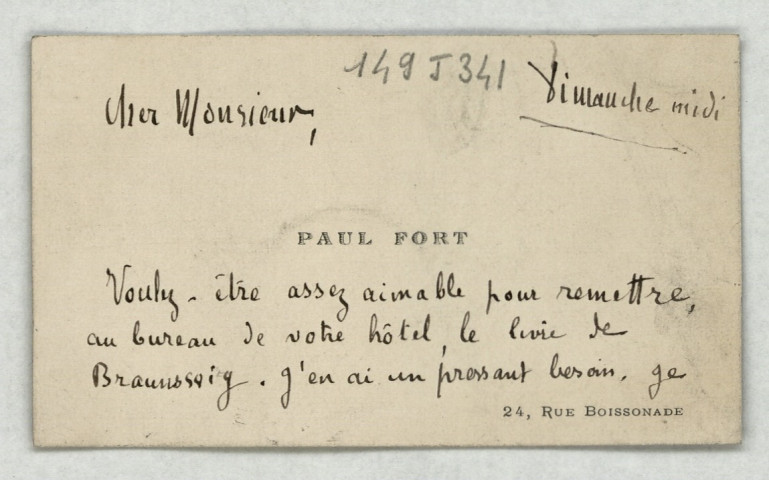 149 J 341
Dimanche midi
Cher Monsieur,
PAUL FORT
Voulez-être assez aimable pour remettre,
au bureau de votre hôtel, le livre de
Braunsvig. J'en ai un pressant besoin. Je
24, RUE BOISSONADE